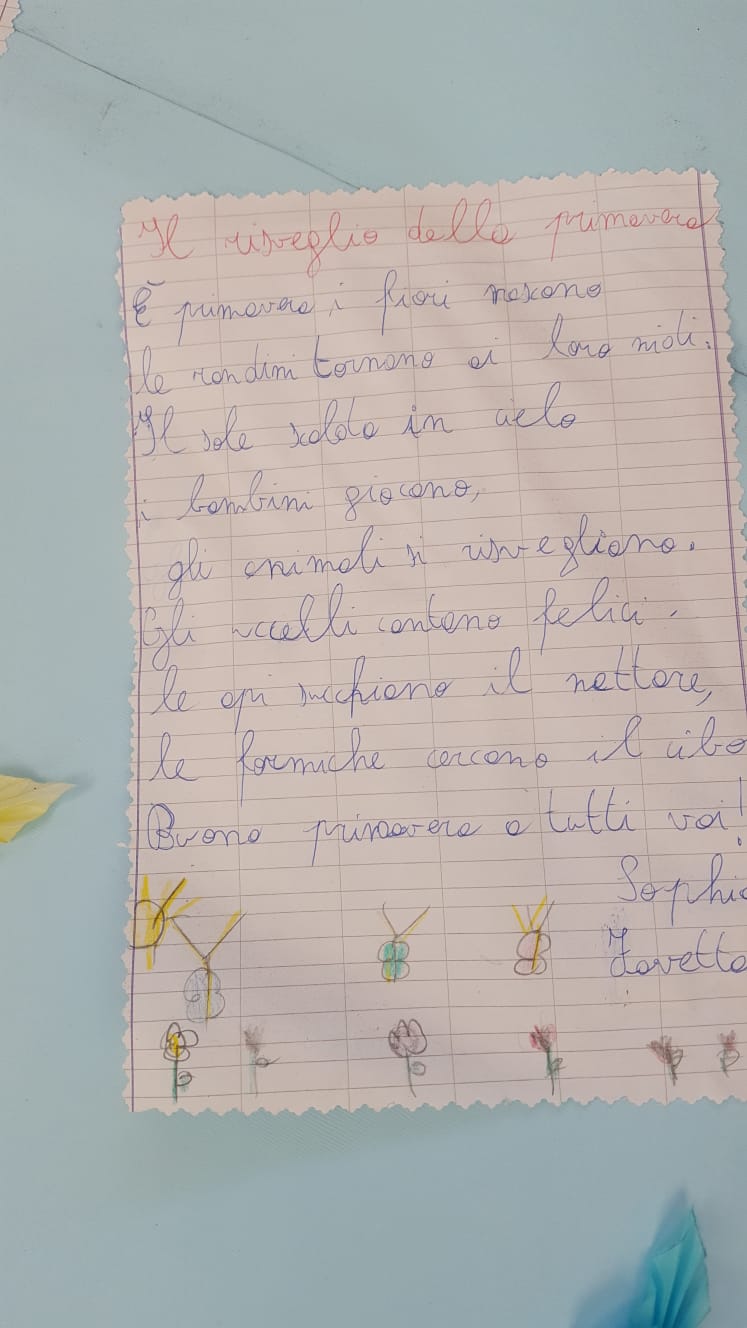 Il risveglio della primavera
È primavera i fiori nascono
le rondini tornano ai loro nidi.
Il sole scalda in cielo
i bambini giocano,
gli animali si risvegliano.
Gli uccelli cantano felici.
le api succhiano il nettare,
le formiche cercano il cibo
Buona primavera a tutti voi!
Sophia